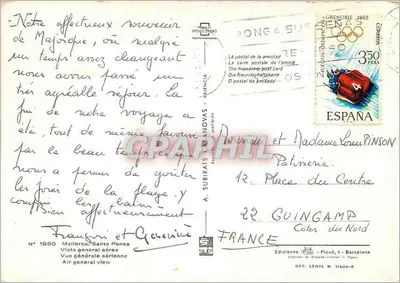 Notre affectueux souvenir
de Majorque, où malgré
un temps assez changeant
nous avons passé un
très agréable séjour. La
fin de notre voyage a
été, tout de même, favorisé
par le beau temps
nous a permis de goûter
les joies de la plage. y
compris les bains
Bien affectueusement
François et Geneviève
Nº 1980 Mallorca, Santa Ponsa
Vista general aérea
Vue générale aérienne
Air general view
A. SUBIRATS CASANOVAS - VALENCIA
La postal de la amistad
La carte postale de l'amitié
The friendship post card
Die freundschaftskarte
O postal da amizade
PONGA SUS
GRENOBLE 1968
CORREOS
3,50
PTAS
4
ESPAÑA
Monsieur et Madame Louis PINSON
Patisserie
12, Place du Centre
22 GUINGAMP
Côtes du Nord
FRANCE
Ediciones Piqué, 1 - Barcelona
DEP. LEGAL B. 11604-X
CARTE PHILA